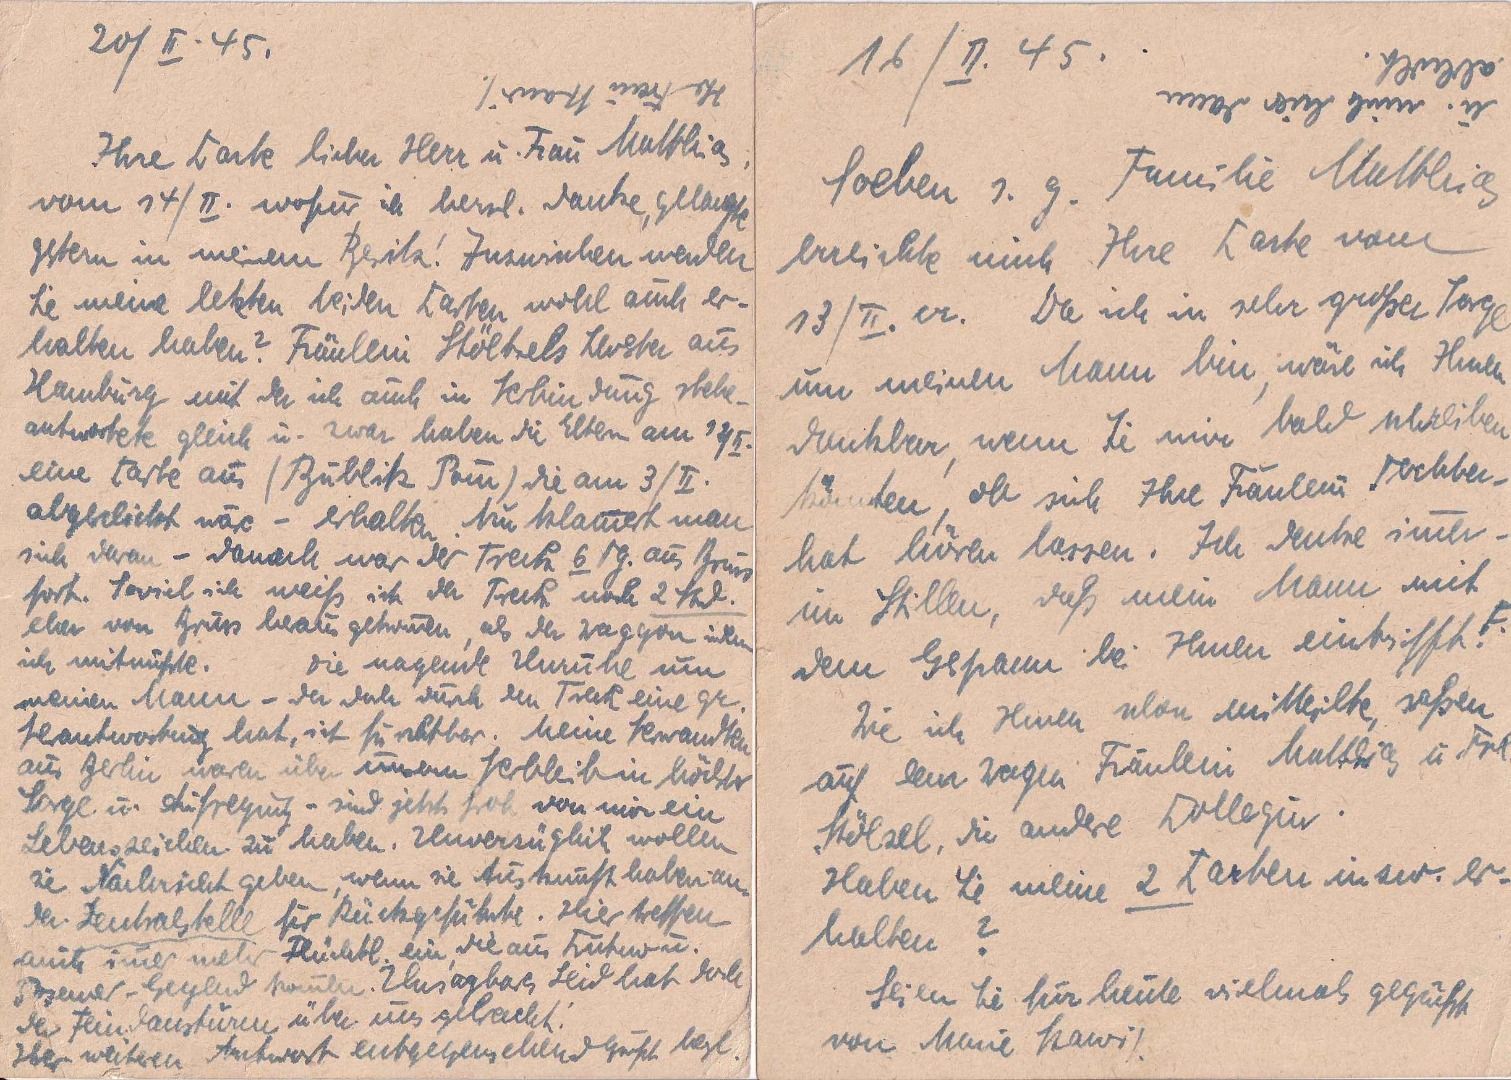 20/II. 45.
Ihre Frau Kawi!
Ihre Karte lieber Herr u. Frau Matthias,
vom 14/II. wofür ich herzl. danke, gelangte
gestern in meinem Besitz! Inzwischen werden
Sie meine letzten beiden Karten wohl auch er-
halten haben? Fräulein Stölzels Schwester aus
Hamburg mit der ich auch in Verbindung stehe-
antwortete gleich u. zwar haben die Eltern am 12/II.
eine Karte aus (Bublitz Pom) die am 3/II.
abgeschickt war - erhalten. Nun klam̅ert man
sich daran - danach war der Treck 6 Tg. aus Bruss
fort. Soviel ich weiß ist der Treck noch 2 Std.
eher von Bruss herausgekom̅en, als der Waggon indem
ich mitmußte. Die nagende Unruhe um
meinen Mann - der doch durch den Treck eine gr.
Verantwortung hat, ist furchtbar. Meine Verwandten
aus Berlin waren über unsern Verbleib in höchster
Sorge u. Aufregung - sind jetzt froh von mir ein
Lebenszeichen zu haben. Unverzüglich wollen
sie Nachricht geben, wenn sie Auskunft haben an-
der Zentralstelle für Rückgeführte. Hier treffen
auch im̅er mehr Flüchtl. ein, die aus u.
Posener-Gegend kom̅en. Unsagbares Leid hat doch
der Feindansturm über uns gebracht!
Ihrer weiteren Antwort entgegensehend grüßt herzl.
16/II. 45.
u. mich hier dann
abholt.
Soeben s. g. Familie Matthias
erreichte mich Ihre Karte vom
13/II. cr. Da ich in sehr großer Sorge
um meinen Mann bin, wäre ich Ihnen
dankbar, wenn Sie mir bald schreiben
könnten, ob sich Ihre Fräulein Tochter-
hat hören lassen. Ich denke im̅er-
im Stillen, daß mein Mann mit
dem Gespann bei Ihnen eintrifft!
Wie ich Ihnen schon mitteilte, saßen
auf dem Wagen Fräulein Matthias u Frl.
Stölzel, die andere Kollegin.
Haben Sie meine 2 Karten inzw. er-
halten?
Seien Sie für heute vielmals gegrüßt
von Marie Kawi!